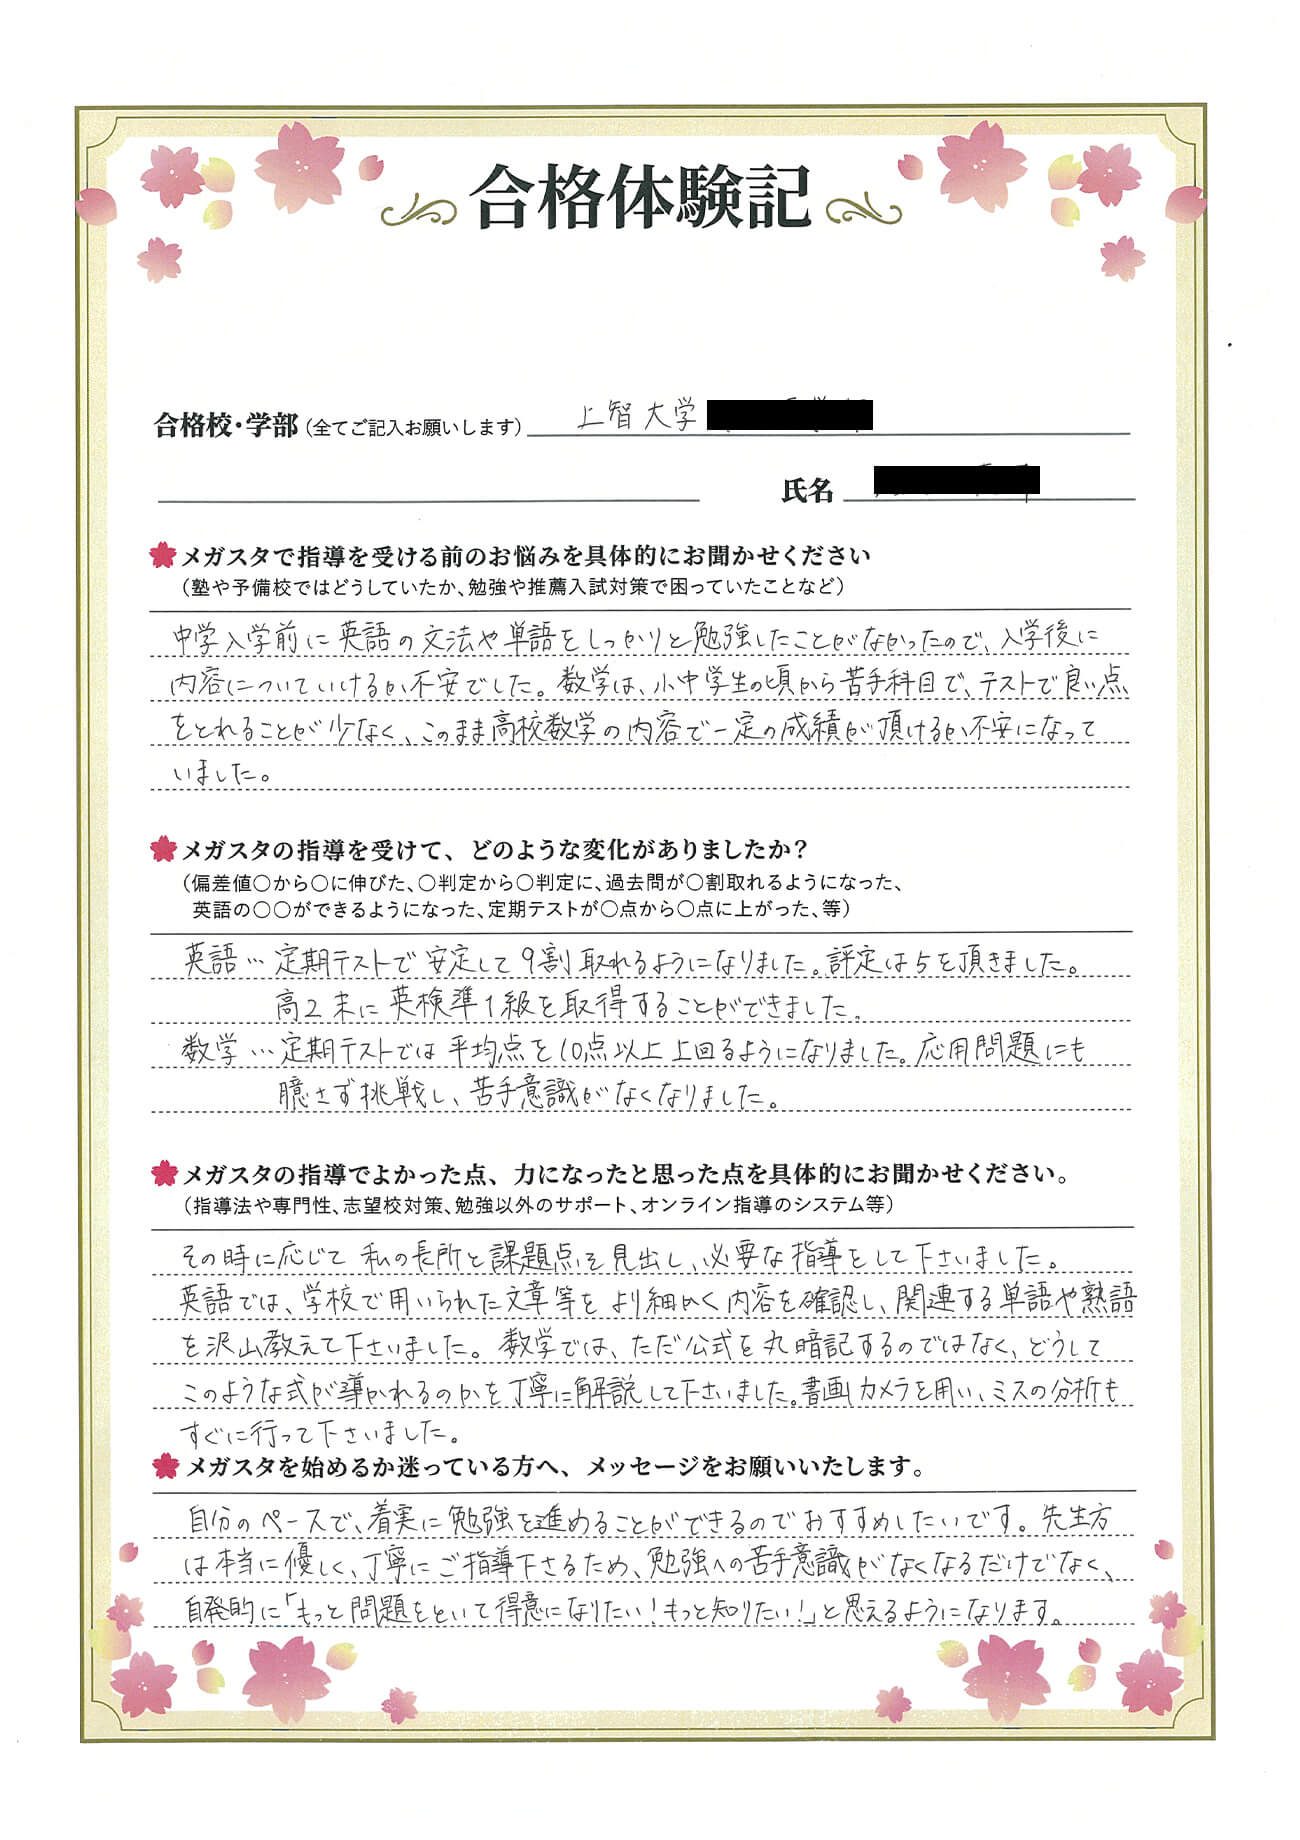 合格体験記
合格校・学部（全てご記入お願いします） 上智大学
氏名
メガスタで指導を受ける前のお悩みを具体的にお聞かせください
（塾や予備校ではどうしていたか、勉強や推薦入試対策で困っていたことなど）
中学入学前に英語の文法や単語をしっかりと勉強したことがなかったので、入学後に
内容についていけるか不安でした。数学は、小中学生の頃から苦手科目で、テストで良い点
をとれることが少なく、このまま高校数学の内容で一定の成績が頂けるか不安になって
いました。
メガスタの指導を受けて、どのような変化がありましたか？
（偏差値〇から〇に伸びた、〇判定から〇判定に、過去問が〇割取れるようになった、
英語の〇〇ができるようになった、定期テストが〇点から〇点に上がった、等）
英語…定期テストで安定して9割取れるようになりました。評定は5を頂きました。
高2末に英検準1級を取得することができました。
数学…定期テストでは平均点を10点以上上回るようになりました。応用問題にも
臆さず挑戦し、苦手意識がなくなりました。
メガスタの指導でよかった点、力になったと思った点を具体的にお聞かせください。
（指導法や専門性、志望校対策、勉強以外のサポート、オンライン指導のシステム等）
その時に応じて私の長所と課題点を見出し、必要な指導をして下さいました。
英語では、学校で用いられた文章等をより細かく内容を確認し、関連する単語や熟語
を沢山教えて下さいました。数学では、ただ公式を丸暗記するのではなく、どうして
このような式が導かれるのかを丁寧に解説して下さいました。書画カメラを用い、ミスの分析も
すぐに行って下さいました。
メガスタを始めるか迷っている方へ、メッセージをお願いいたします。
自分のペースで、着実に勉強を進めることができるのでおすすめしたいです。先生方
は本当に優しく、丁寧にご指導下さるため、勉強への苦手意識がなくなるだけでなく、
自発的に「もっと問題をといて得意になりたい！もっと知りたい！」と思えるようになります。